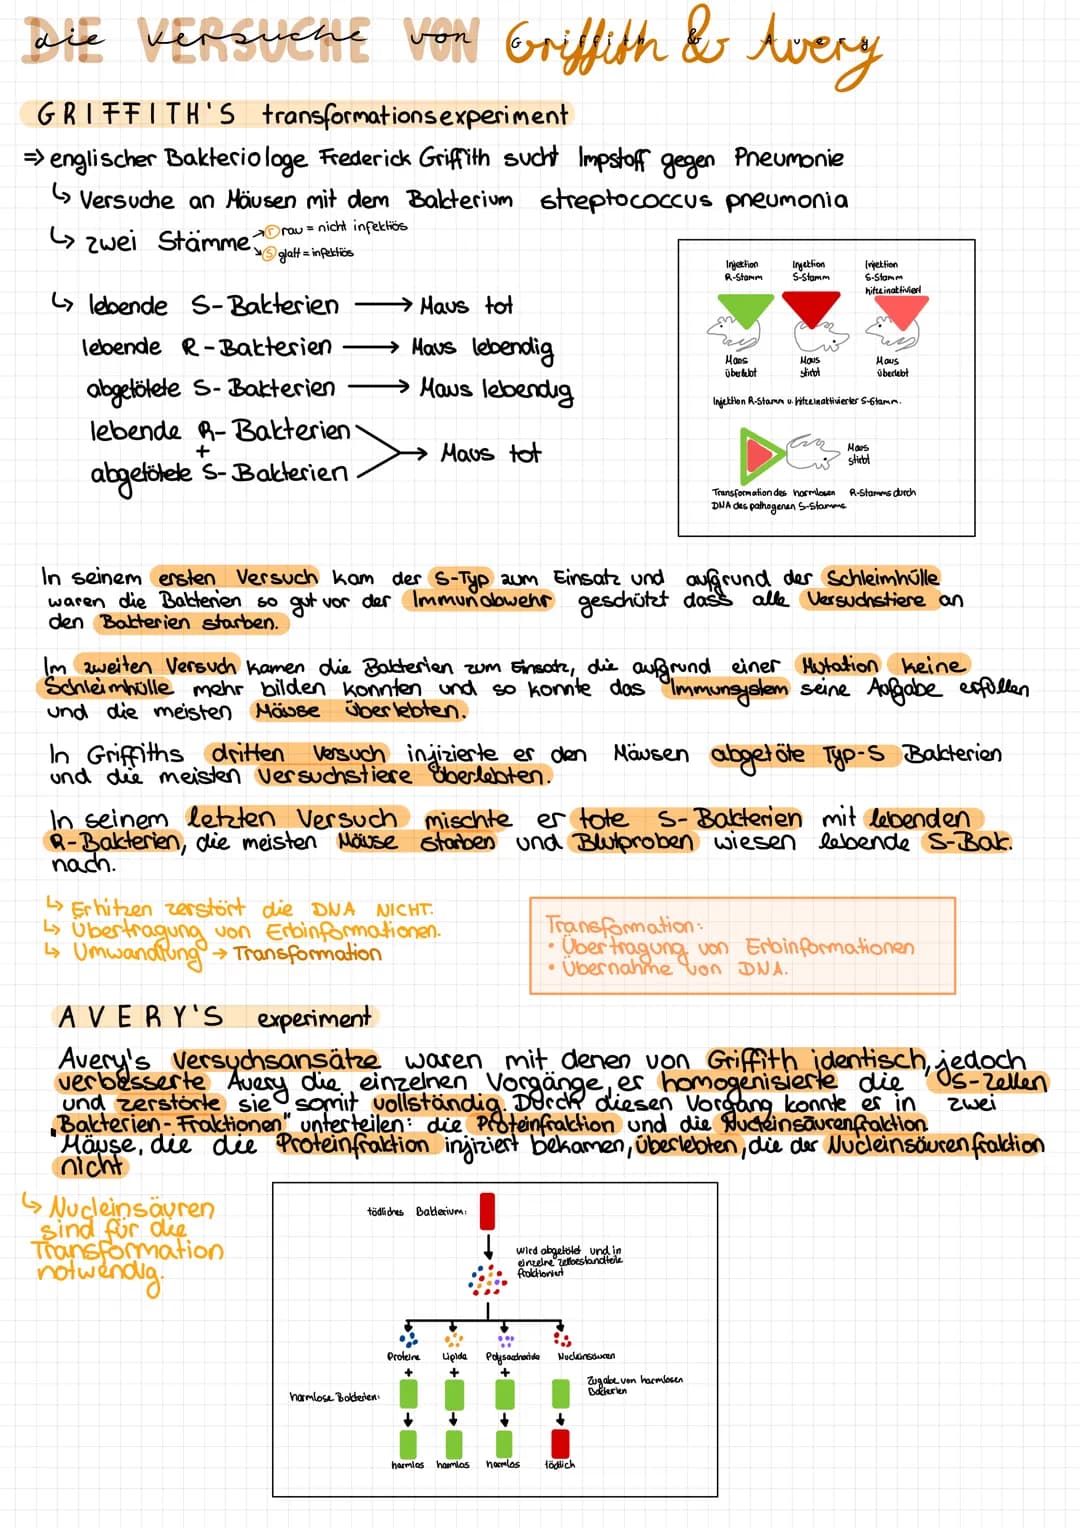 DIE VERSUCHE VON Griffith & Avery
GRIFFITH'S transformationsexperiment
⇒ englischer Bakteriologe Frederick Griffith sucht Impstoff gegen Pneumonie
↳ Versuche an Mäusen mit dem Bakterium streptococcus pneumonia
↳ zwei Stämme
→ R rau = nicht infektiös
↘ S glatt = infektiös
↳ lebende S-Bakterien → Maus tot
lebende R-Bakterien → Maus lebendig
abgetötete S-Bakterien → Maus lebendig
lebende R-Bakterien
+
abgetötete S-Bakterien
→ Maus tot
Injektion R-Stamm
Injektion S-Stamm
Injektion S-Stamm hitzeinaktiviert
Maus überlebt
Maus stirbt
Maus überlebt
Injektion R-Stamm u. hitzeinaktivierter S-Stamm.
Maus stirbt
Transformation des harmlosen R-Stamms durch
DNA des pathogenen S-Stamms
In seinem ersten Versuch kam der S-Typ zum Einsatz und aufgrund der Schleimhülle
waren die Bakterien so gut vor der Immunabwehr geschützt dass alle Versuchstiere an
den Bakterien starben.
Im zweiten Versuch kamen die Bakterien zum Einsatz, die aufgrund einer Mutation keine
Schleimhülle mehr bilden konnten und so konnte das Immunsystem seine Aufgabe erfüllen
und die meisten Mäuse überlebten.
In Griffiths dritten Versuch injizierte er den Mäusen abgetöte Typ-S Bakterien
und die meisten Versuchstiere überlebten.
In seinem letzten Versuch mischte er tote S-Bakterien mit lebenden
R-Bakterien, die meisten Mäuse starben und Blutproben wiesen lebende S-Bak.
nach.
↳ Erhitzen zerstört die DNA NICHT.
↳ Übertragung von Erbinformationen.
↳ Umwandlung → Transformation
Transformation:
• Übertragung von Erbinformationen
• Übernahme von DNA.
AVERY'S experiment
Avery's Versuchsansätze waren mit denen von Griffith identisch, jedoch
verbesserte Avery die einzelnen Vorgänge, er homogenisierte die S-Zellen
und zerstörte sie somit vollständig. Durch diesen Vorgang konnte er in zwei
„Bakterien-Fraktionen" unterteilen: die Proteinfraktion und die Nucleinsäurenfraktion.
Mäuse, die die Proteinfraktion injiziert bekamen, überlebten, die der Nucleinsäurenfraktion
nicht
↳ Nucleinsäuren
sind für die
Transformation
notwendig.
tödliches Bakterium:
wird abgetötet und in
einzelne Zellbestandteile
fraktioniert
Proteine Lipide Polysaccharide Nucleinsäuren
+ + +
Zugabe von harmlosen
Bakterien
harmlose Bakterien:
harmlos harmlos harmlos tödlich